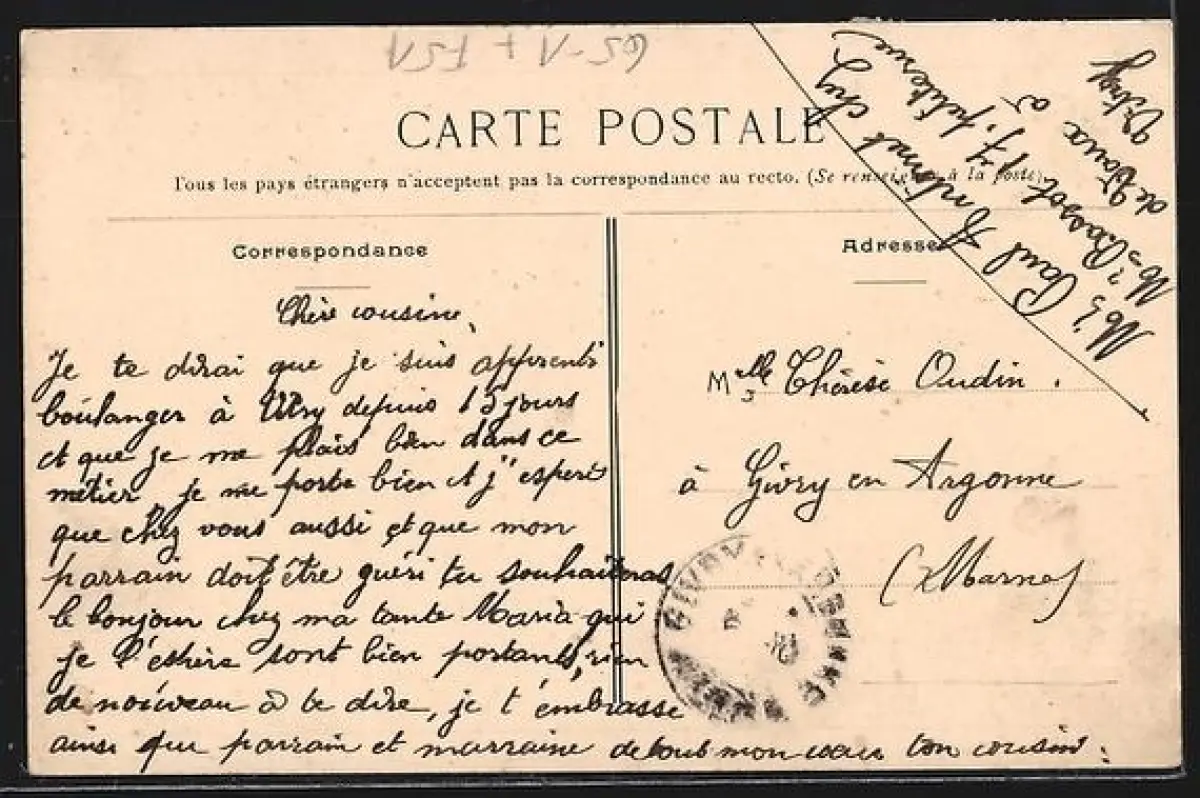 CARTE POSTALE
Tous les pays étrangers n'acceptent pas la correspondance au recto. (Se renseigner à la poste).
Correspondance
Chère cousine,
Je te dirai que je suis apprenti
boulanger à Vitry depuis 15 jours
et que je me plais bien dans ce
métier, je me porte bien et j'espère
que chez vous aussi et que mon
parrain doit être guéri tu souhaiteras
le bonjour chez ma tante Maria qui
je l'espère sont bien portants, rien
de nouveau à te dire, je t'embrasse
ainsi que parrain et marraine de tout mon cœur ton cousin.
Adresse
Mlle Thérèse Oudin.
à Givry en Argonne
(Marne)
Paul
chez
Mr
de
à
Vitry